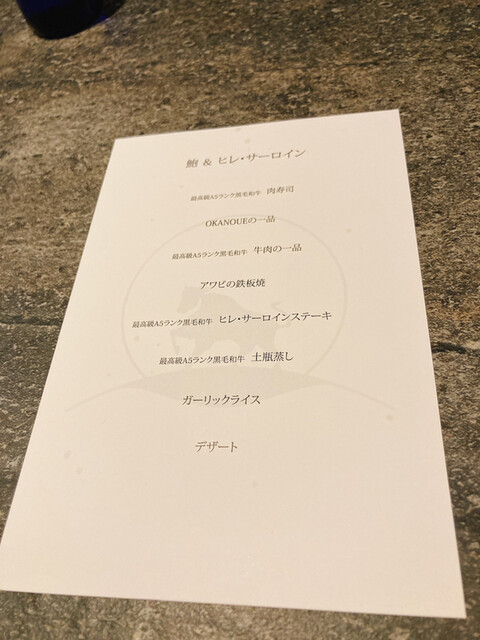 鮑 & ヒレ・サーロイン
最高級A5ランク黒毛和牛 肉寿司
OKANOUEの一品
最高級A5ランク黒毛和牛 牛肉の一品
アワビの鉄板焼
最高級A5ランク黒毛和牛 ヒレ・サーロインステーキ
最高級A5ランク黒毛和牛 土瓶蒸し
ガーリックライス
デザート